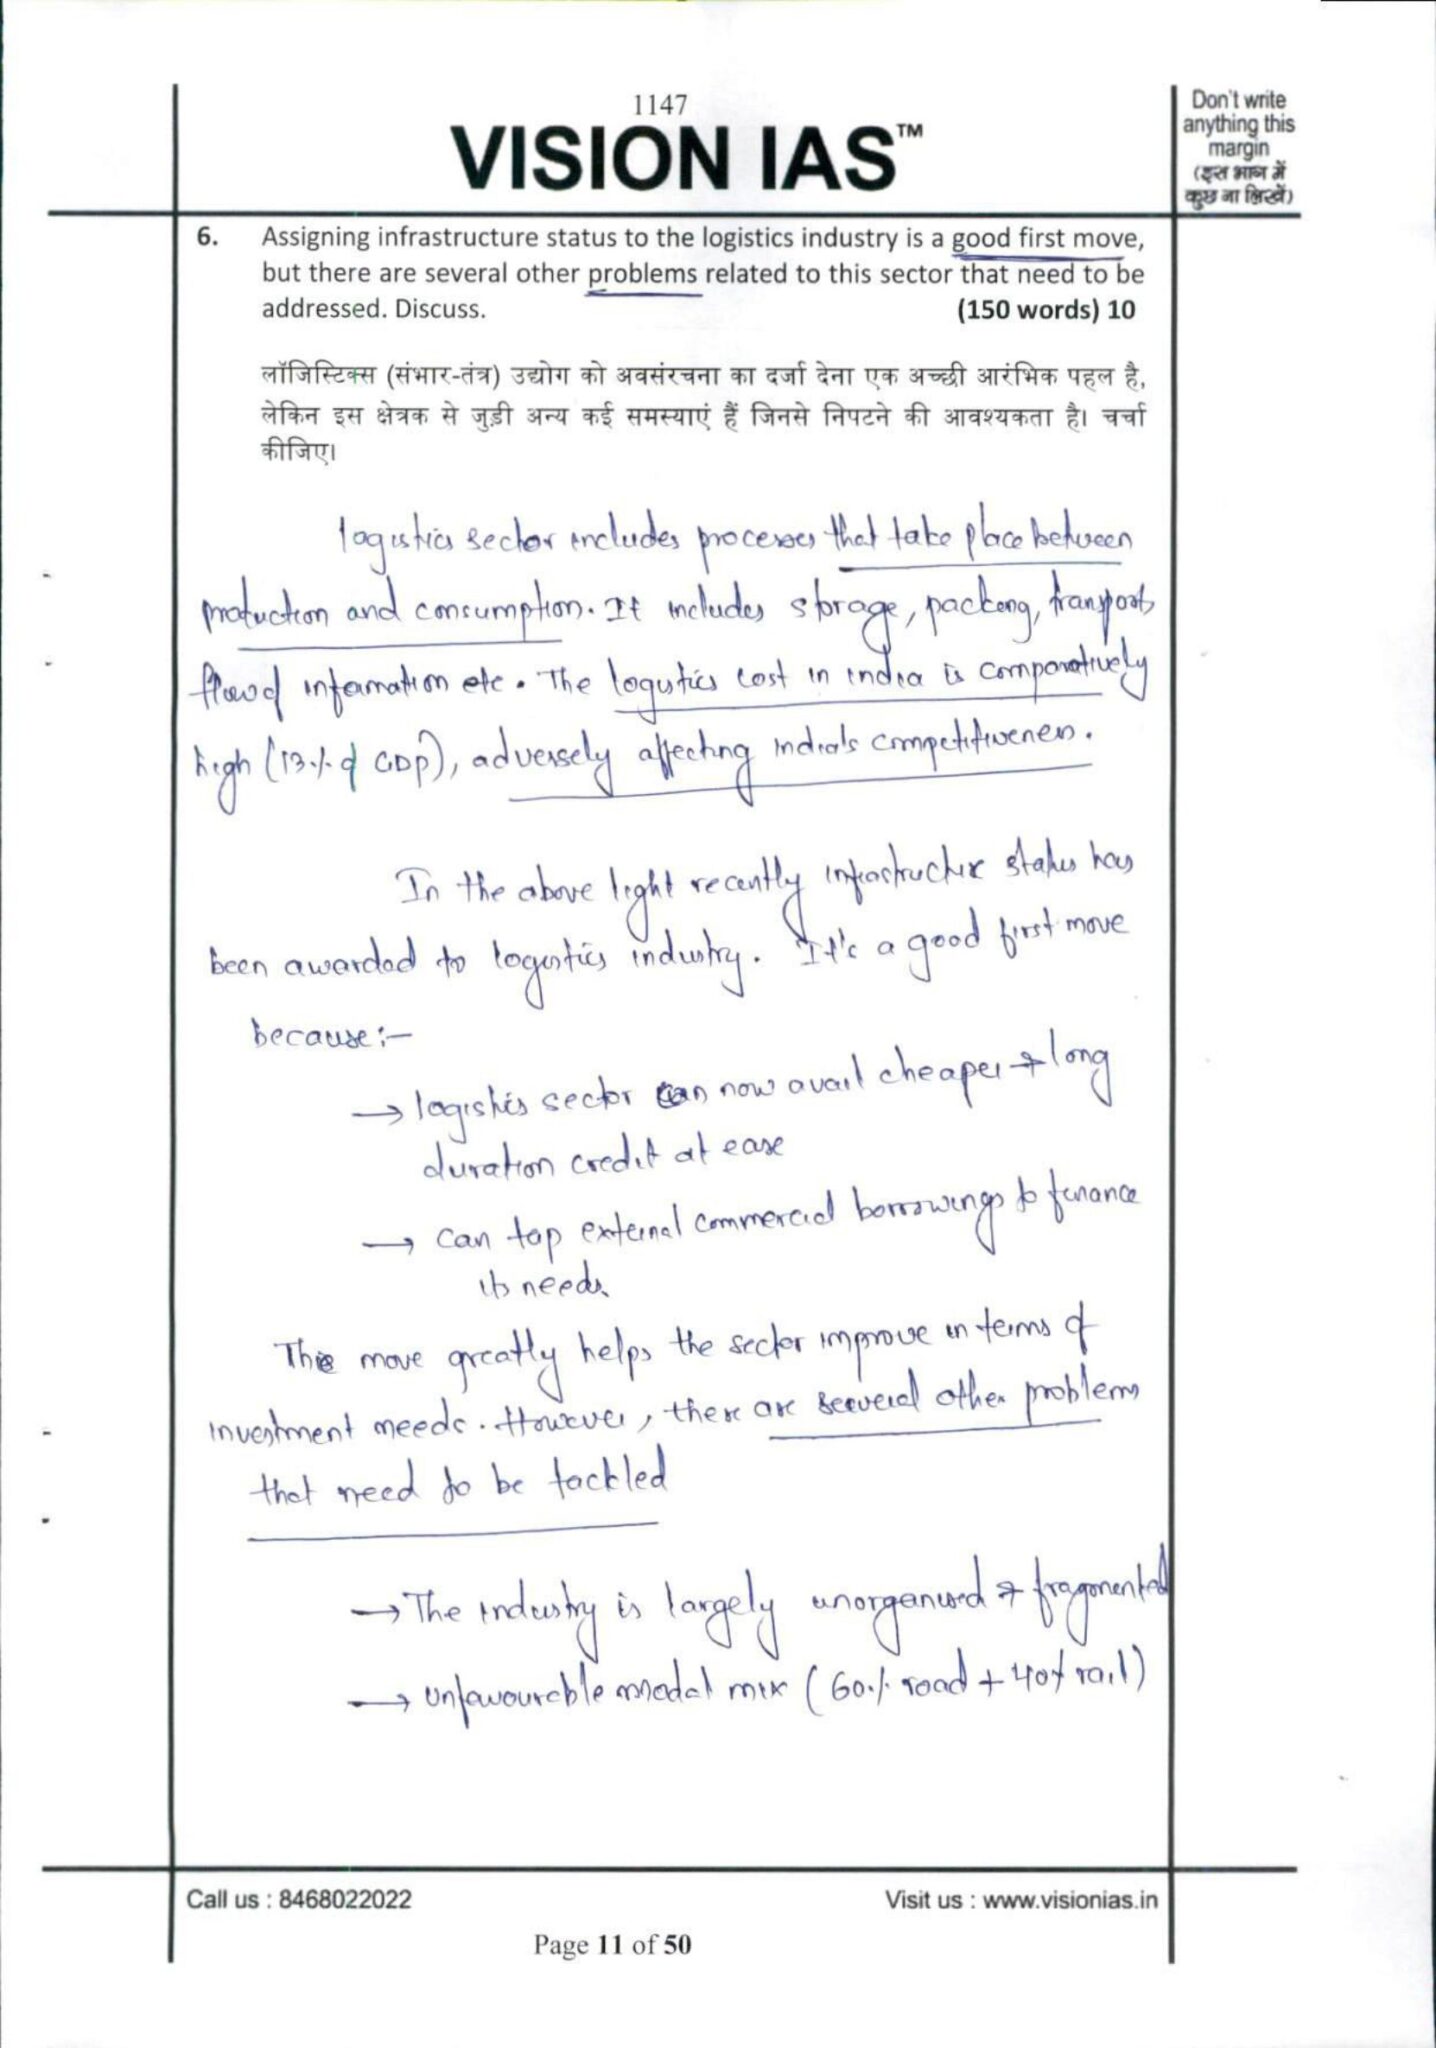 1147
VISION IAS™
Don't write
anything this
margin
(इस भाग में
कुछ ना लिखें)
6. Assigning infrastructure status to the logistics industry is a good first move,
but there are several other problems related to this sector that need to be
addressed. Discuss. (150 words) 10
लॉजिस्टिक्स (संभार-तंत्र) उद्योग को अवसंरचना का दर्जा देना एक अच्छी आरंभिक पहल है,
लेकिन इस क्षेत्रक से जुड़ी अन्य कई समस्याएं हैं जिनसे निपटने की आवश्यकता है। चर्चा
कीजिए।
logistics sector includes processes that take place between
production and consumption. It includes storage, packing, transport,
flow of information etc. The logistics cost in india is comparatively
high (13% of GDP), adversely affecting India's competitiveness.
In the above light recently infrastructure status has
been awarded to logistics industry. It's a good first move
because:-
→ logistics sector can now avail cheaper & long
duration credit at ease
→ can tap external commercial borrowings to finance
its needs.
This move greatly helps the sector improve in terms of
investment needs. However, there are several other problems
that need to be tackled
→ The industry is largely unorganised & fragmented
→ unfavourable modal mix (60% road + 40% rail)
Call us : 8468022022
Visit us : www.visionias.in
Page 11 of 50